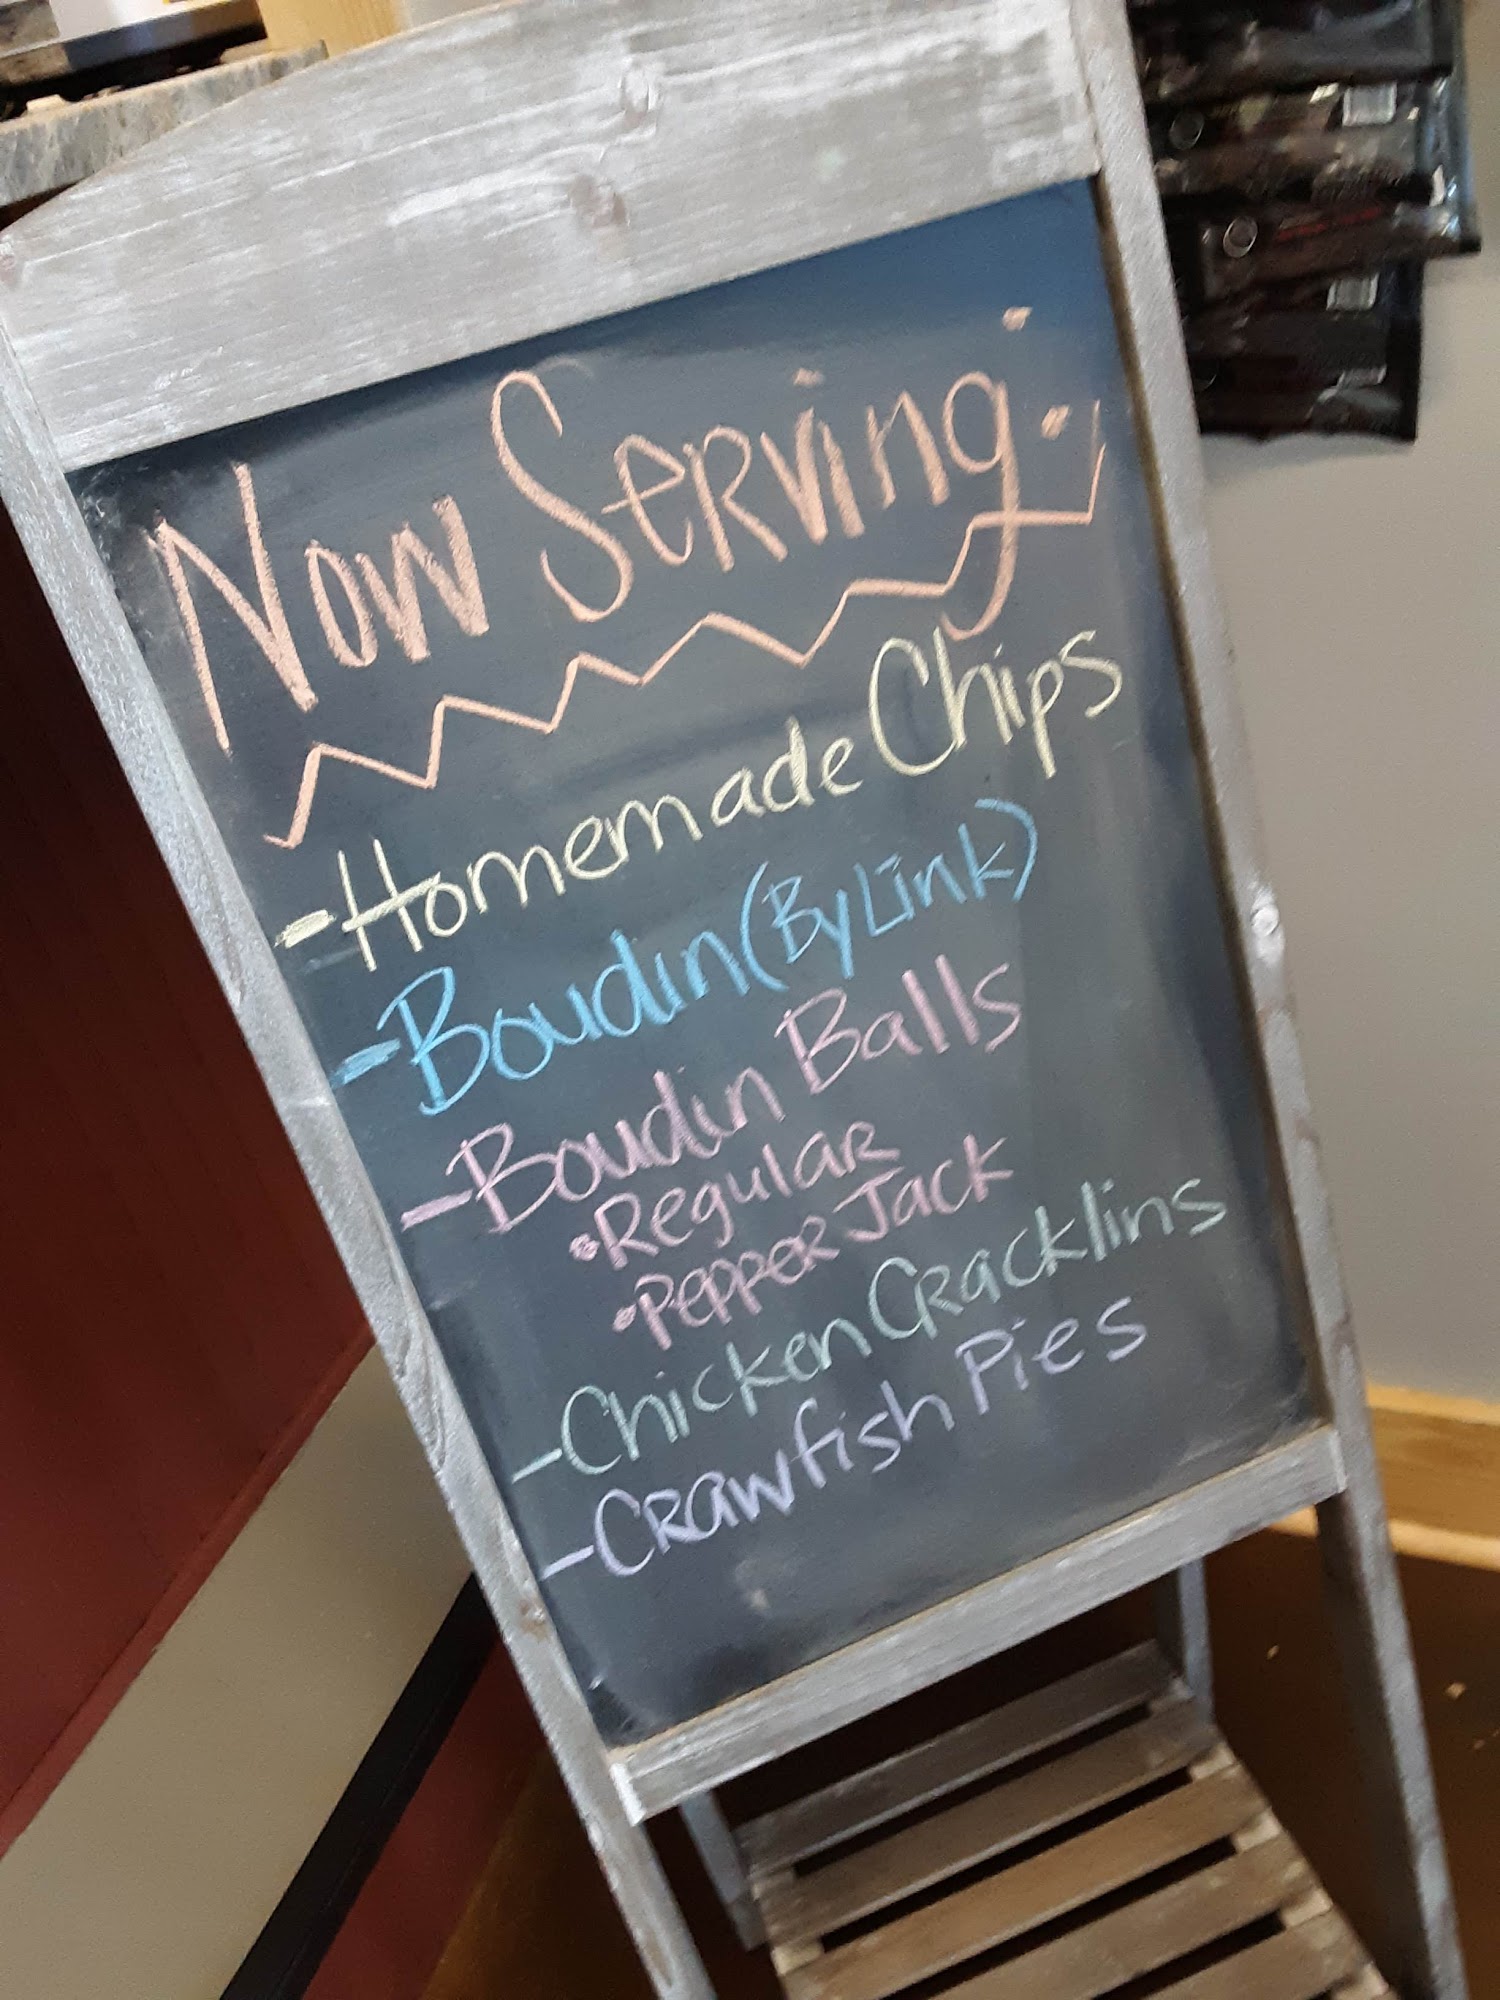 Now Serving:
-Homemade Chips
-Boudin (By Link)
-Boudin Balls
•Regular
•Pepper Jack
-Chicken Cracklins
-Crawfish Pies